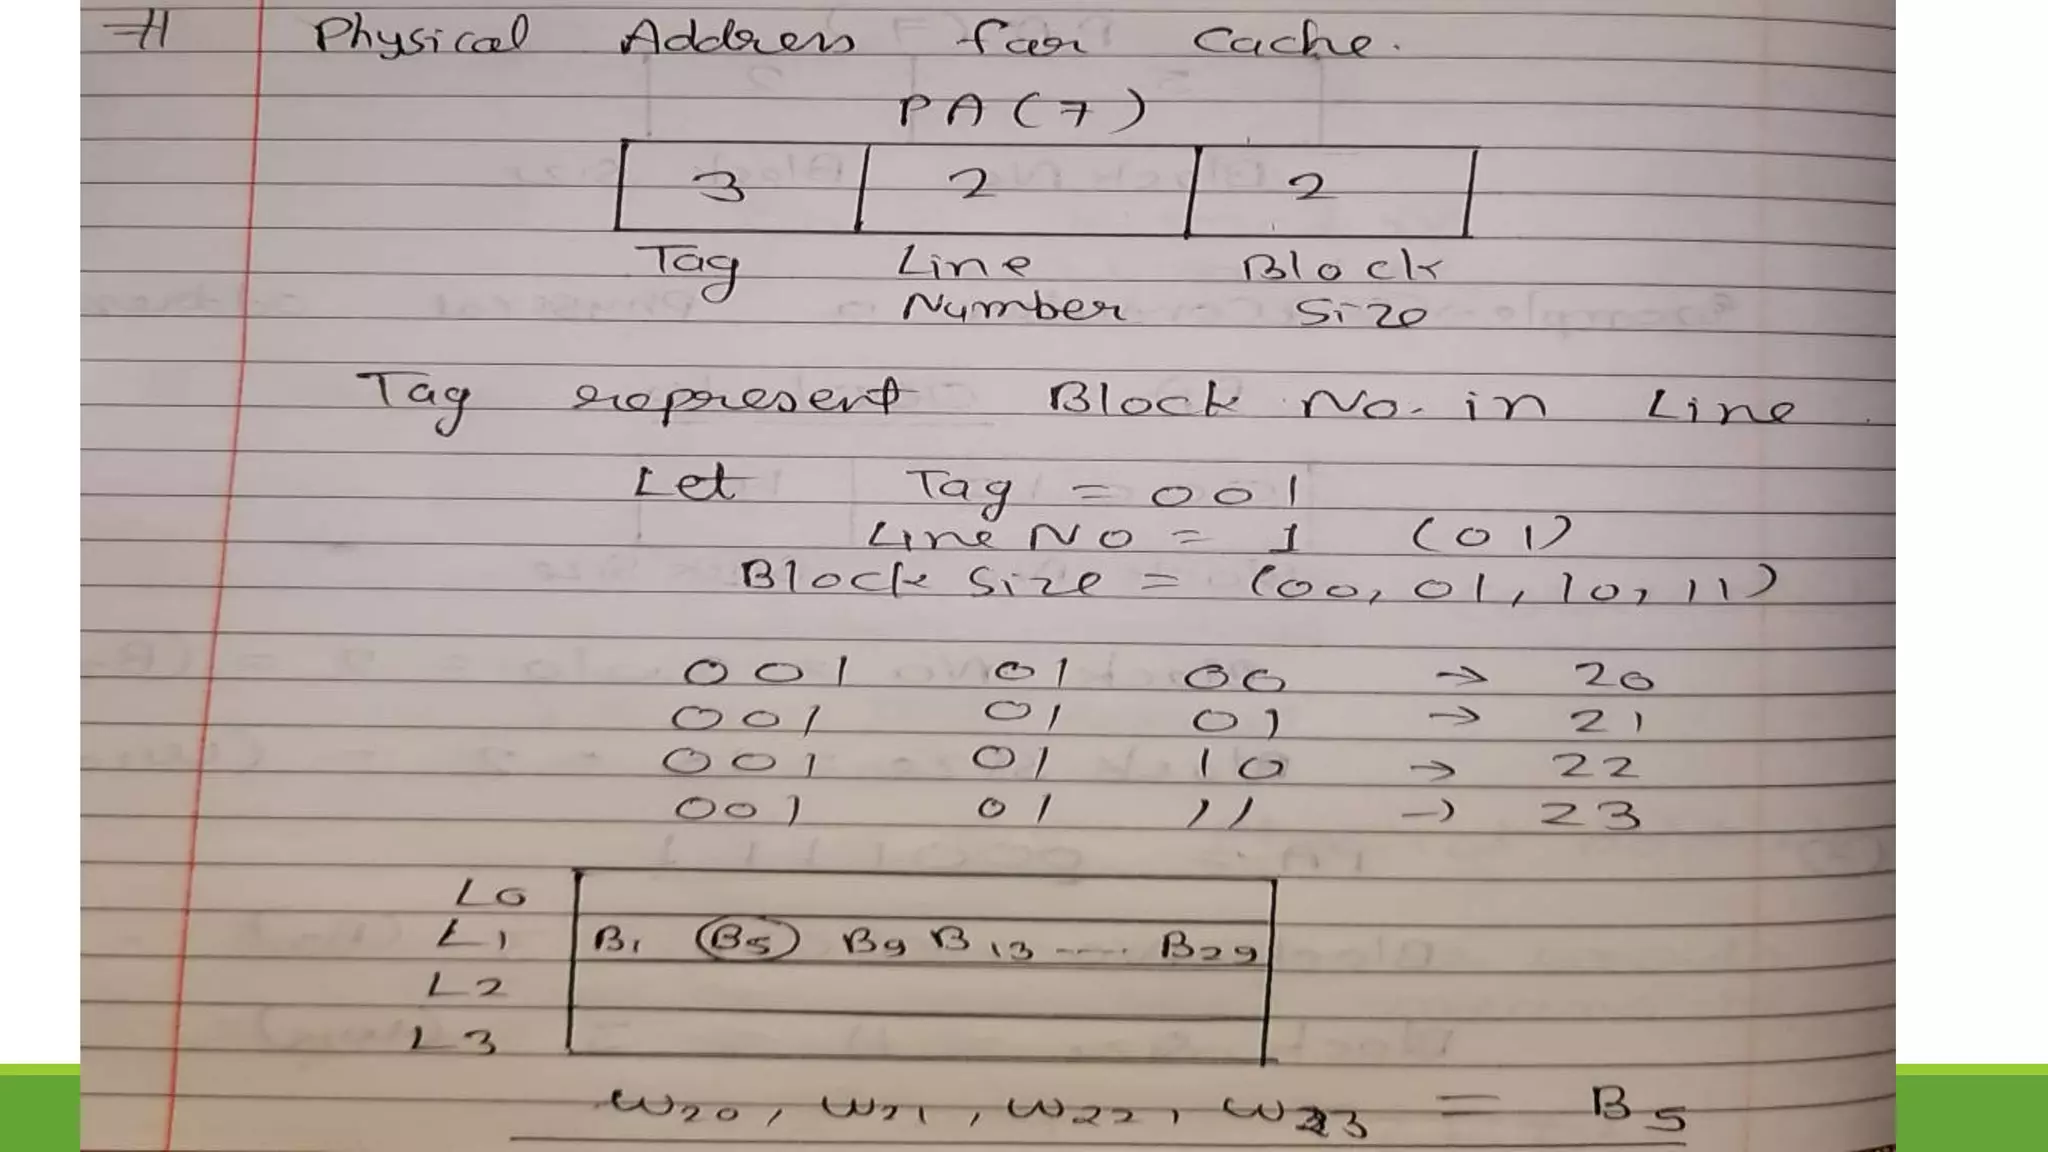 # Physical Address for Cache.
PA (7)
3 2 2
Tag Line Block
Number Size
Tag represent Block No. in Line.
Let Tag = 001
Line No = 1 (01)
Block Size = (00, 01, 10, 11)
001 01 00 → 20
001 01 01 → 21
001 01 10 → 22
001 01 11 → 23
L0
L1 B1 B5 B9 B13 ---- B29
L2
L3
W20, W21, W22, W23 = B5